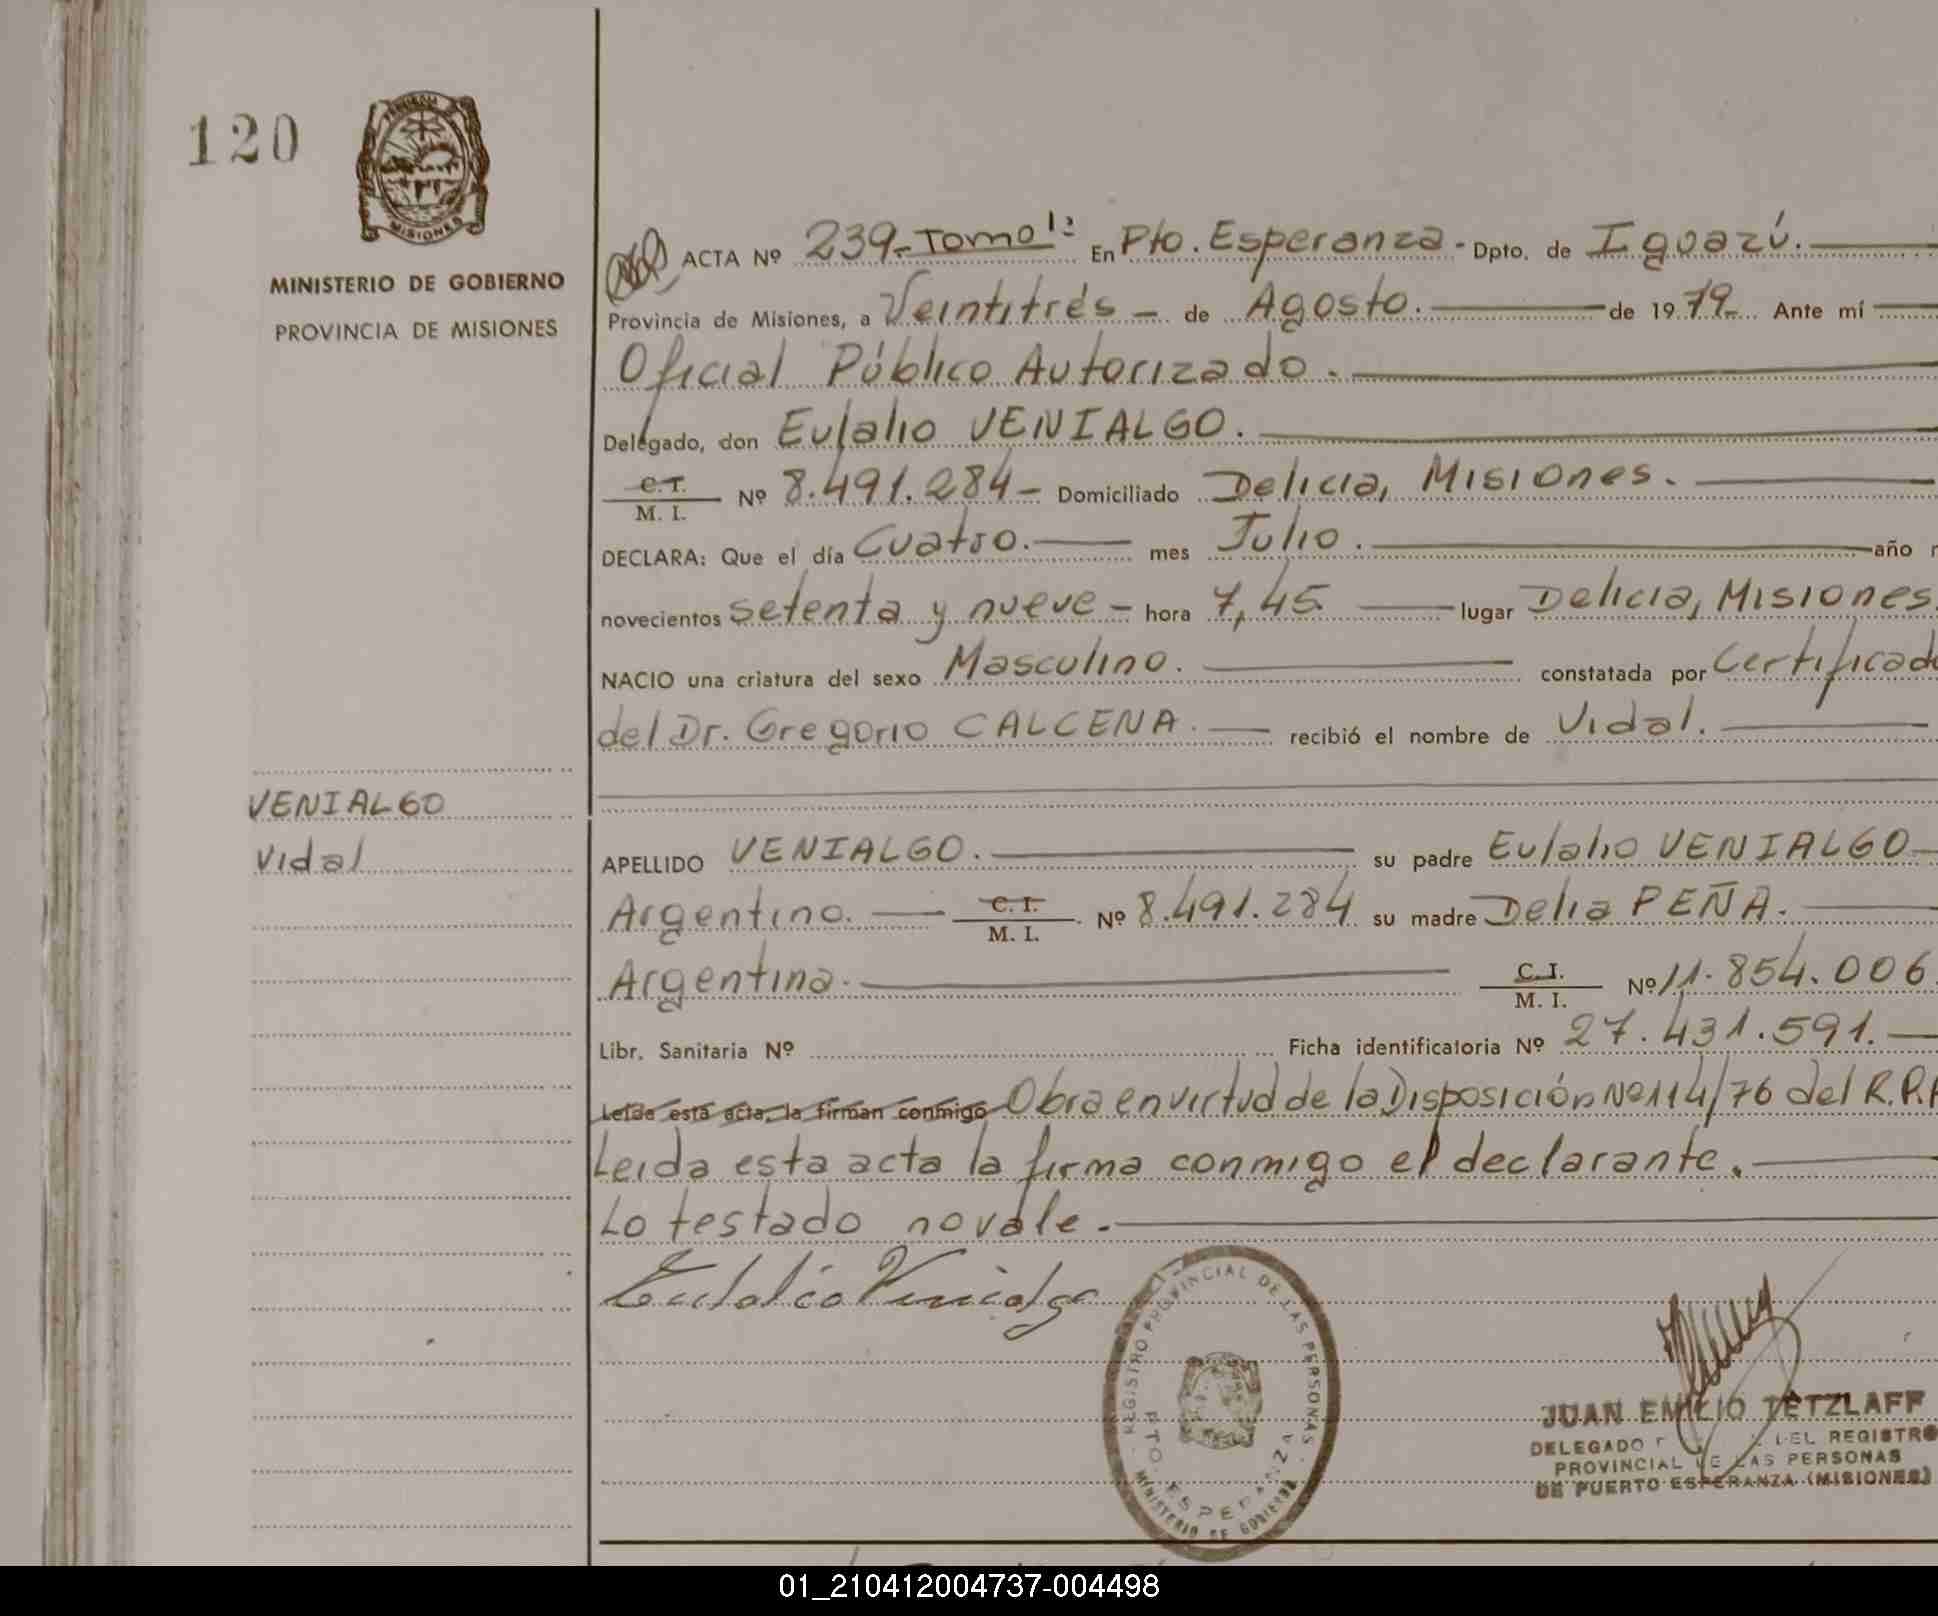 120
MISIONES
MINISTERIO DE GOBIERNO
PROVINCIA DE MISIONES
ACTA Nº 239.- Tomo 1º En Pto. Esperanza.- Dpto. de Iguazú.
Provincia de Misiones, a Veintitrés - de Agosto. de 19 79 Ante mí
Oficial Público Autorizado.
Delegado, don Eulalio VENIALGO.
C.I. M. I. Nº 8.491.284- Domiciliado Delicia, Misiones.
DECLARA: Que el día Cuatro. mes Julio. año
novecientos setenta y nueve - hora 7,45 lugar Delicia, Misiones.
NACIO una criatura del sexo Masculino. constatada por Certificado
del Dr. Gregorio CALCENA. recibió el nombre de Vidal.
VENIALGO
Vidal
APELLIDO VENIALGO. su padre Eulalio VENIALGO
Argentino. C. I. M. I. Nº 8.491.284 su madre Delia PEÑA.
Argentina. C. I. M. I. Nº 11.854.006
Libr. Sanitaria Nº Ficha identificatoria Nº 27.431.591.
Leída esta acta, la firman conmigo Obra en virtud de la Disposición Nº 114/76 del R.P.
Leida esta acta la firma conmigo el declarante.
Lo testado no vale.
Eulalio Venialgo
REGISTRO PROVINCIAL DE LAS PERSONAS
PTO. ESPERANZA
MINISTERIO DE GOBIERNO
JUAN EMILIO TETZLAFF
DELEGADO DEL REGISTRO
PROVINCIAL DE LAS PERSONAS
DE PUERTO ESPERANZA (MISIONES)
01_210412004737-004498